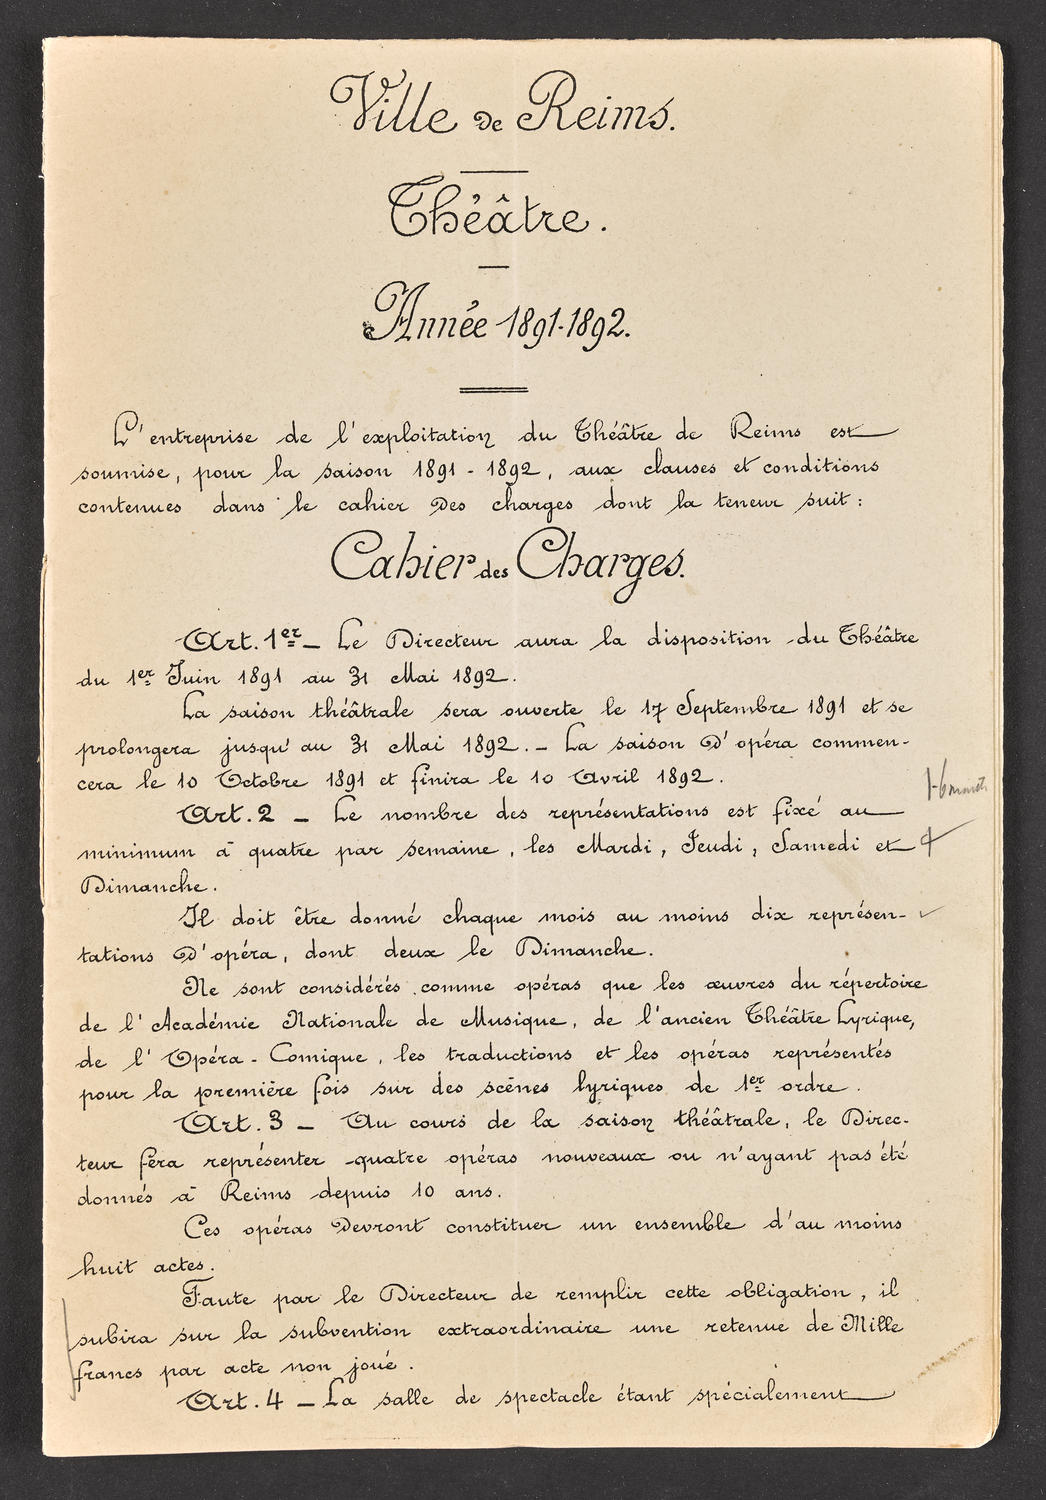 Ville de Reims.
Théâtre.
Année 1891-1892.
L'entreprise de l'exploitation du Théâtre de Reims est
soumise, pour la saison 1891-1892, aux clauses et conditions
contenues dans le cahier des charges dont la teneur suit :
Cahier des Charges.
Art. 1er — Le Directeur aura la disposition du Théâtre
du 1er Juin 1891 au 31 Mai 1892.
La saison théâtrale sera ouverte le 17 Septembre 1891 et se
prolongera jusqu'au 31 Mai 1892. — La saison d'opéra commen-
cera le 10 Octobre 1891 et finira le 10 Avril 1892.
Art. 2 — Le nombre des représentations est fixé au
minimum à quatre par semaine, les Mardi, Jeudi, Samedi et
Dimanche.
Il doit être donné chaque mois au moins dix représen-
tations d'opéra, dont deux le Dimanche.
Ne sont considérés comme opéras que les œuvres du répertoire
de l'Académie Nationale de Musique, de l'ancien Théâtre Lyrique,
de l'Opéra-Comique, les traductions et les opéras représentés
pour la première fois sur des scènes lyriques de 1er ordre.
Art. 3 — Au cours de la saison théâtrale, le Direc-
teur fera représenter quatre opéras nouveaux ou n'ayant pas été
donnés à Reims depuis 10 ans.
Ces opéras devront constituer un ensemble d'au moins
huit actes.
Faute par le Directeur de remplir cette obligation, il
subira sur la subvention extraordinaire une retenue de Mille
francs par acte non joué.
Art. 4 — La salle de spectacle étant spécialement